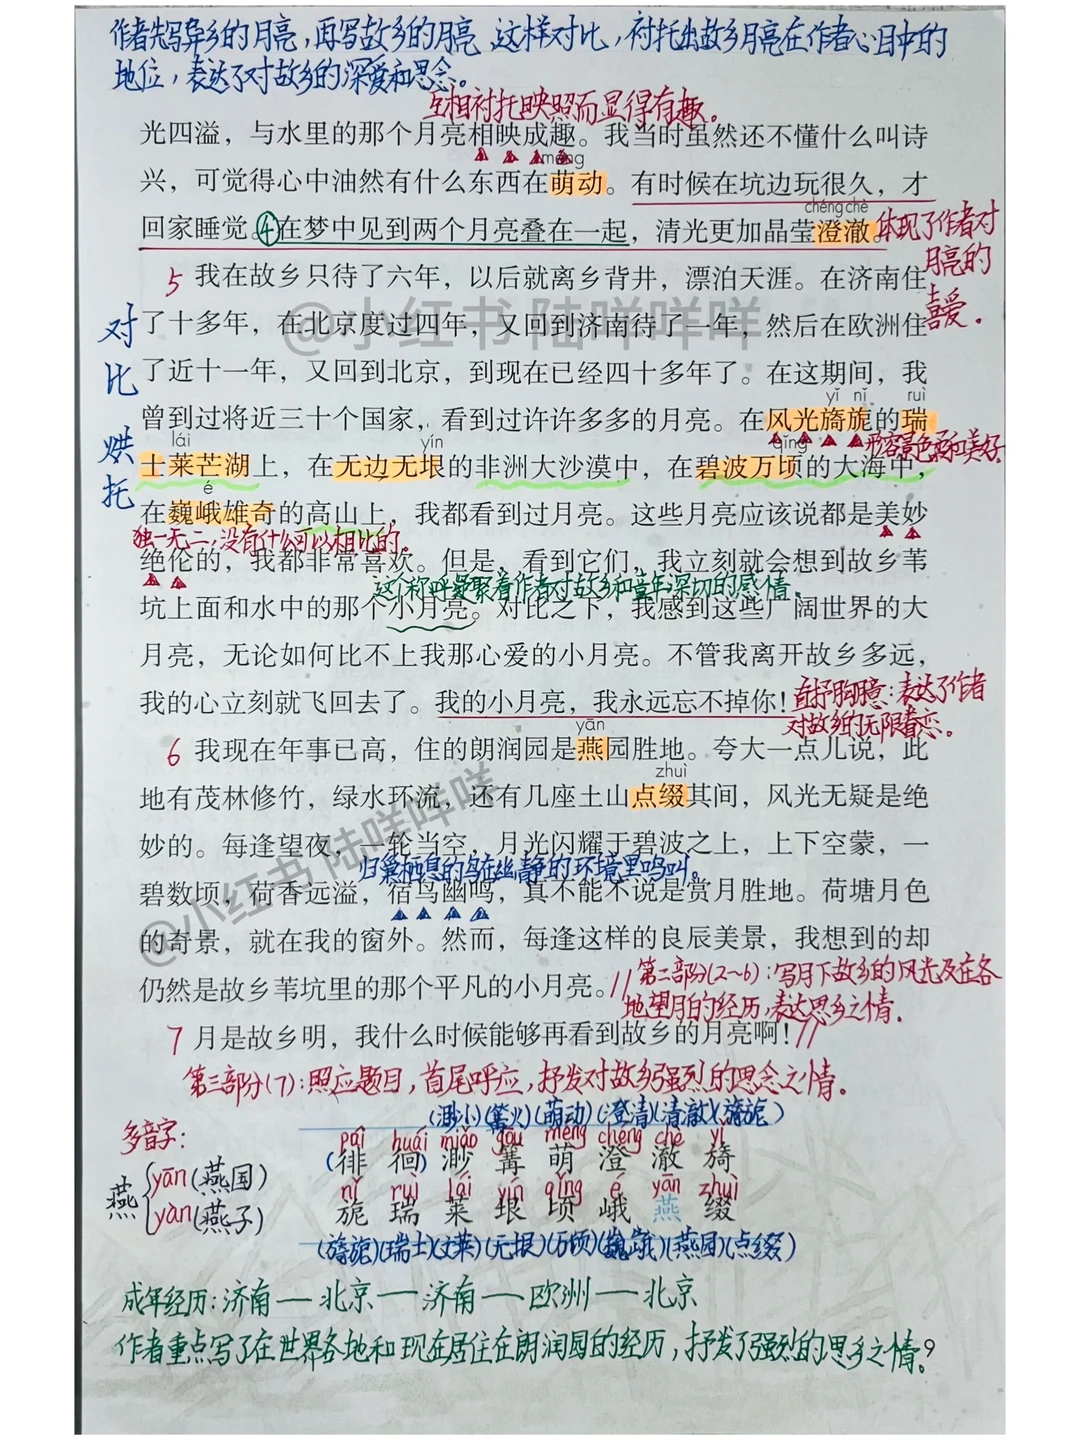 作者先写异乡的月亮，再写故乡的月亮，这样对比，衬托出故乡月亮在作者心目中的
地位，表达了对故乡的深爱和思念。
互相衬托映照而显得有趣。
光四溢，与水里的那个月亮相映成趣。我当时虽然还不懂什么叫诗
méng
兴，可觉得心中油然有什么东西在萌动。有时候在坑边玩很久，才
chéng chè
回家睡觉。④在梦中见到两个月亮叠在一起，清光更加晶莹澄澈。
体现了作者对
月亮的
喜爱。
5 我在故乡只待了六年，以后就离乡背井，漂泊天涯。在济南住
@小红书 陆咩咩咩
了十多年，在北京度过四年，又回到济南待了一年，然后在欧洲住
对比
烘托
了近十一年，又回到北京，到现在已经四十多年了。在这期间，我
yǐ nǐ ruì
曾到过将近三十个国家，看到过许许多多的月亮。在风光旖旎的瑞
形容景色柔和美好。
lái yín qǐng
士莱芒湖上，在无边无垠的非洲大沙漠中，在碧波万顷的大海中，
é
在巍峨雄奇的高山上，我都看到过月亮。这些月亮应该说都是美妙
独一无二，没有什么可以相比的。
绝伦的，我都非常喜欢。但是，看到它们，我立刻就会想到故乡苇
这个称呼凝聚着作者对故乡和童年深切的感情。
坑上面和水中的那个小月亮。对比之下，我感到这些广阔世界的大
月亮，无论如何比不上我那心爱的小月亮。不管我离开故乡多远，
我的心立刻就飞回去了。我的小月亮，我永远忘不掉你！
直抒胸臆：表达了作者
对故乡的无限眷恋。
yān
6 我现在年事已高，住的朗润园是燕园胜地。夸大一点儿说，此
zhuì
地有茂林修竹，绿水环流，还有几座土山点缀其间，风光无疑是绝
妙的。每逢望夜，一轮当空，月光闪耀于碧波之上，上下空蒙，一
归巢栖息的鸟在幽静的环境里鸣叫。
碧数顷，荷香远溢，宿鸟幽鸣，真不能不说是赏月胜地。荷塘月色
@小红书 陆咩咩咩
的奇景，就在我的窗外。然而，每逢这样的良辰美景，我想到的却
仍然是故乡苇坑里的那个平凡的小月亮。//
第二部分(2～6)：写月下故乡的风光及在各
地望月的经历，表达思乡之情。
7 月是故乡明，我什么时候能够再看到故乡的月亮啊！//
第三部分(7)：照应题目，首尾呼应，抒发对故乡强烈的思念之情。
(渺小)(篝火)(萌动)(澄清)(清澈)(旖旎)
多音字：
燕 yān(燕国)
yàn(燕子)
pái huái miǎo gōu méng chéng chè yǐ
(徘徊)渺篝萌澄澈旖
nǐ ruì lái yín qǐng é yān zhuì
旎瑞莱垠顷峨燕缀
(旖旎)(瑞士)(文莱)(无垠)(万顷)(巍峨)(燕园)(点缀)
成年经历：济南—北京—济南—欧洲—北京
作者重点写了在世界各地和现在居住在朗润园的经历，抒发了强烈的思乡之情。
9